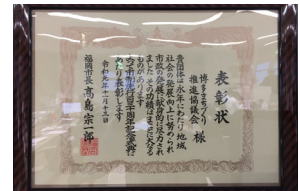 表彰状
博多まちづくり
推進協議会 様
貴団体は永年にわたり地域
社会の発展向上に努められ
市政の発展に献身的に尽力され
ました その功績はまことに大なる
ものがあります
よって市制施行百三十周年記念式典に
あたり表彰します
令和元年十月十三日
福岡市長 高島宗一郎